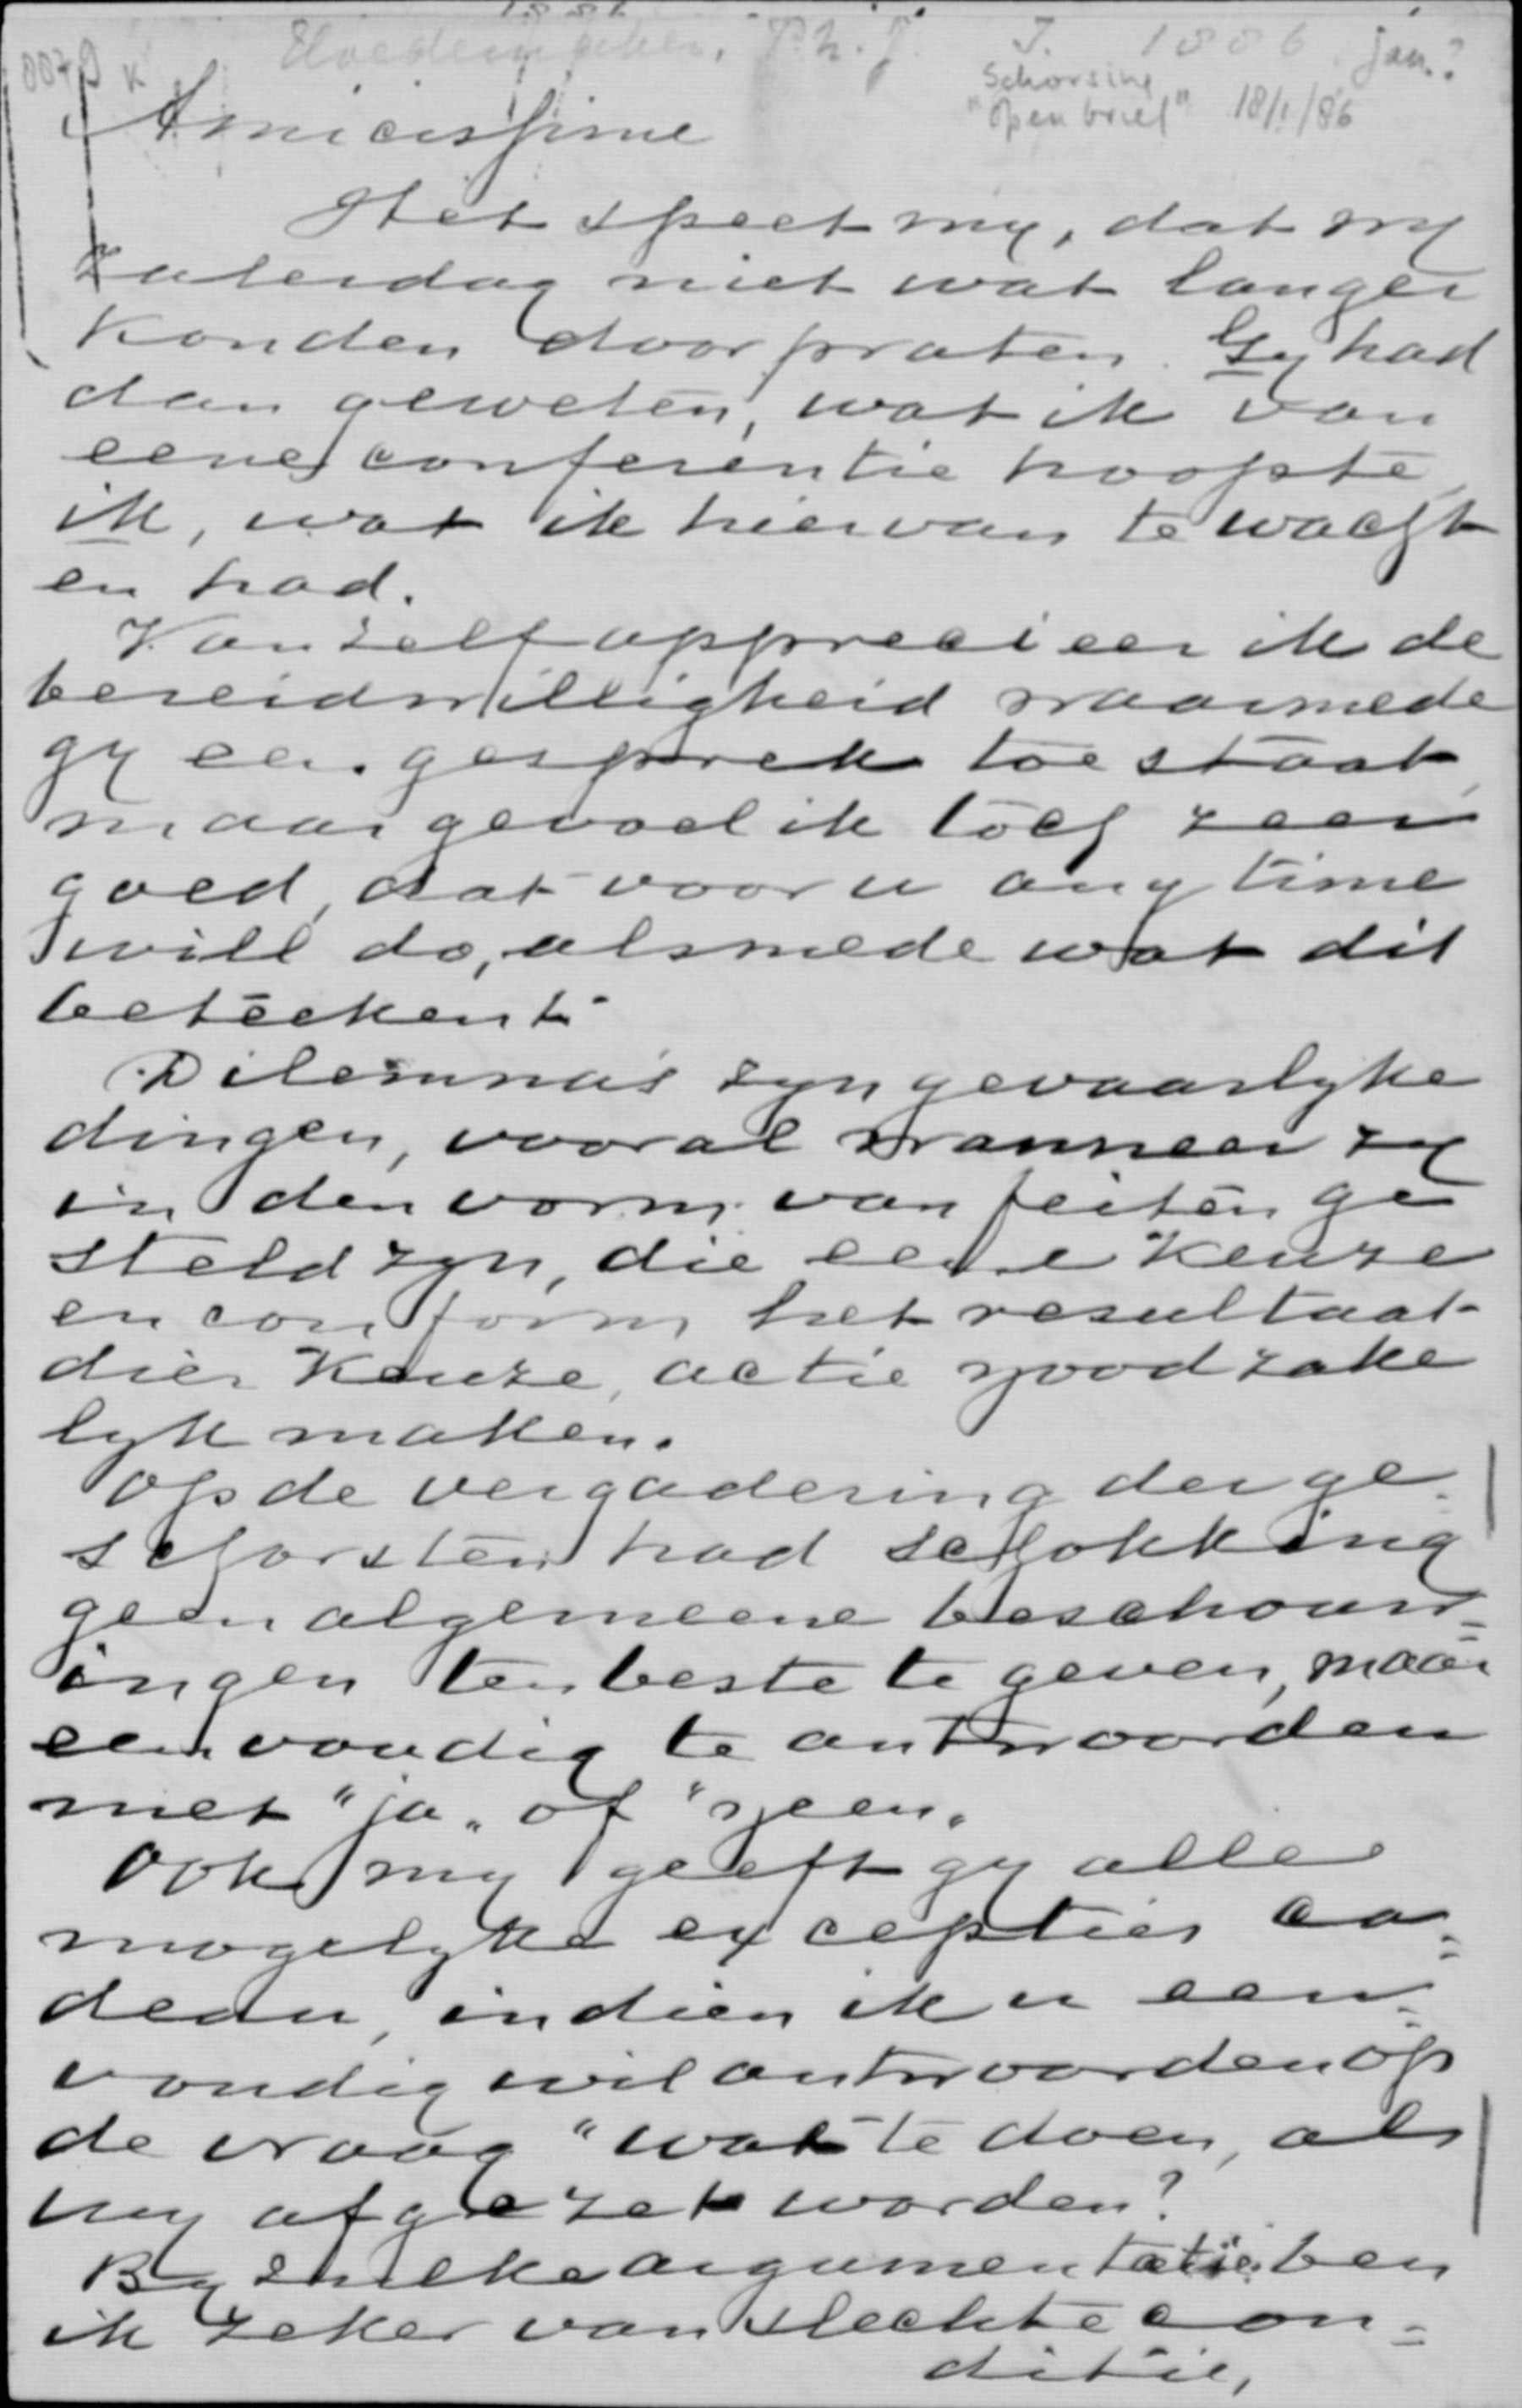 1886
Hoedemaker, Ph. J. J. 1886 jan.?
Schorsing
"Open brief" 18/1/86
Amicissime
Het speet my, dat wy
Zaterdag niet wat langer
konden doorpraten. Gy had
dan geweten, wat ik van
eene conferentie hoopte,
ik, wat ik hiervan te wacht
en had.
Van zelf apprecieer ik de
bereidwilligheid waarmede
gy een gesprek toestaat,
maar gevoel ik toch zeer
goed, dat voor u any time
will do, alsmede wat dit
beteekent.
Dilemma's zyn gevaarlyke
dingen, vooral wanneer zy
in den vorm van feiten ge
steld zyn, die eene keuze
en conform het resultaat
dier keuze, actie noodzake
lyk maken.
Op de vergadering der ge-
schorsten had Schokking
geen algemeene beschouw=
ingen ten beste te geven, maar
eenvoudig te antwoorden
met "ja" of "neen"
Ook my geeft gy alle
mogelyke excepties ca=
deau, indien ik u een=
voudig wil antwoorden op
de vraag "wat te doen, als
wy afgezet worden?
By zulke argumentatie ben
ik zeker van slechte con=
ditie,